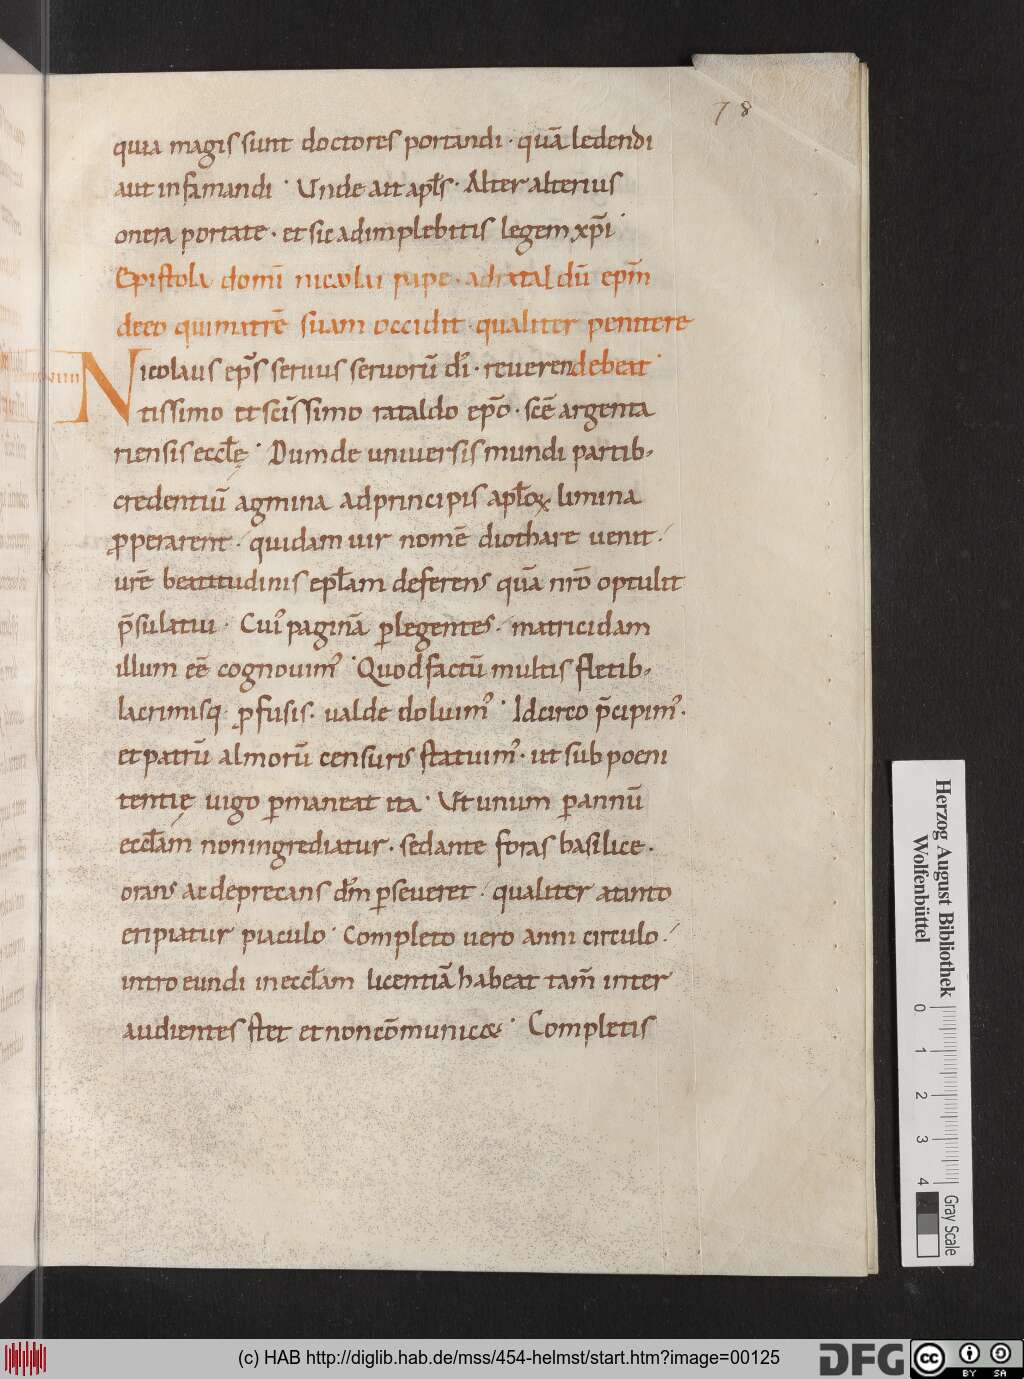 78
quia magis sunt doctores portandi · quā ledendi
aut infamandi · Unde ait apl̄s · Alter alterius
onera portate · et sic adimplebitis legem xp̄i ·
Epistola domī nicolai pape · ad rataldū ep̄m
de eo qui matrē suam occidit · qualiter penitere
Nicolaus ep̄s seruus seruorū dī · reueren debeat ·
tissimo et scīssimo rataldo ep̄o · scē argenta
riensis eccl̄ę · Dum de uniuersis mundi partib;
credentiū agmina ad principis apl̄oꝝ limina
ꝓperarent · quidam uir nomē diothare uenit ·
urē beatitudinis epl̄am deferens quā nrō optulit
p̄sulatui · Cui᾽ paginā ꝑlegentes · matricidam
illum eē cognouim᾽ · Quod factū multis fletib;
lacrimisq· ꝓfusis · ualde doluim᾽ · Idcirco p̄cipim᾽ ·
et patrū almorū censuris statuim᾽ · ut sub poeni
tentię uigo ꝑmaneat ita · Ut unum ꝑ annū
eccl̄am non ingrediatur · sed ante foras basilice ·
orans ac deprecans dm̄ ꝑseueret · qualiter a tanto
eripiatur piaculo · Completo uero anni circulo ·
introeundi in eccl̄am licentiā habeat tam̄ inter
audientes stet et non cōmunicet · Completis
Herzog August Bibliothek
Wolfenbüttel
0 1 2 3 4
Gray Scale
(c) HAB http://diglib.hab.de/mss/454-helmst/start.htm?image=00125
DFG
cc BY SA